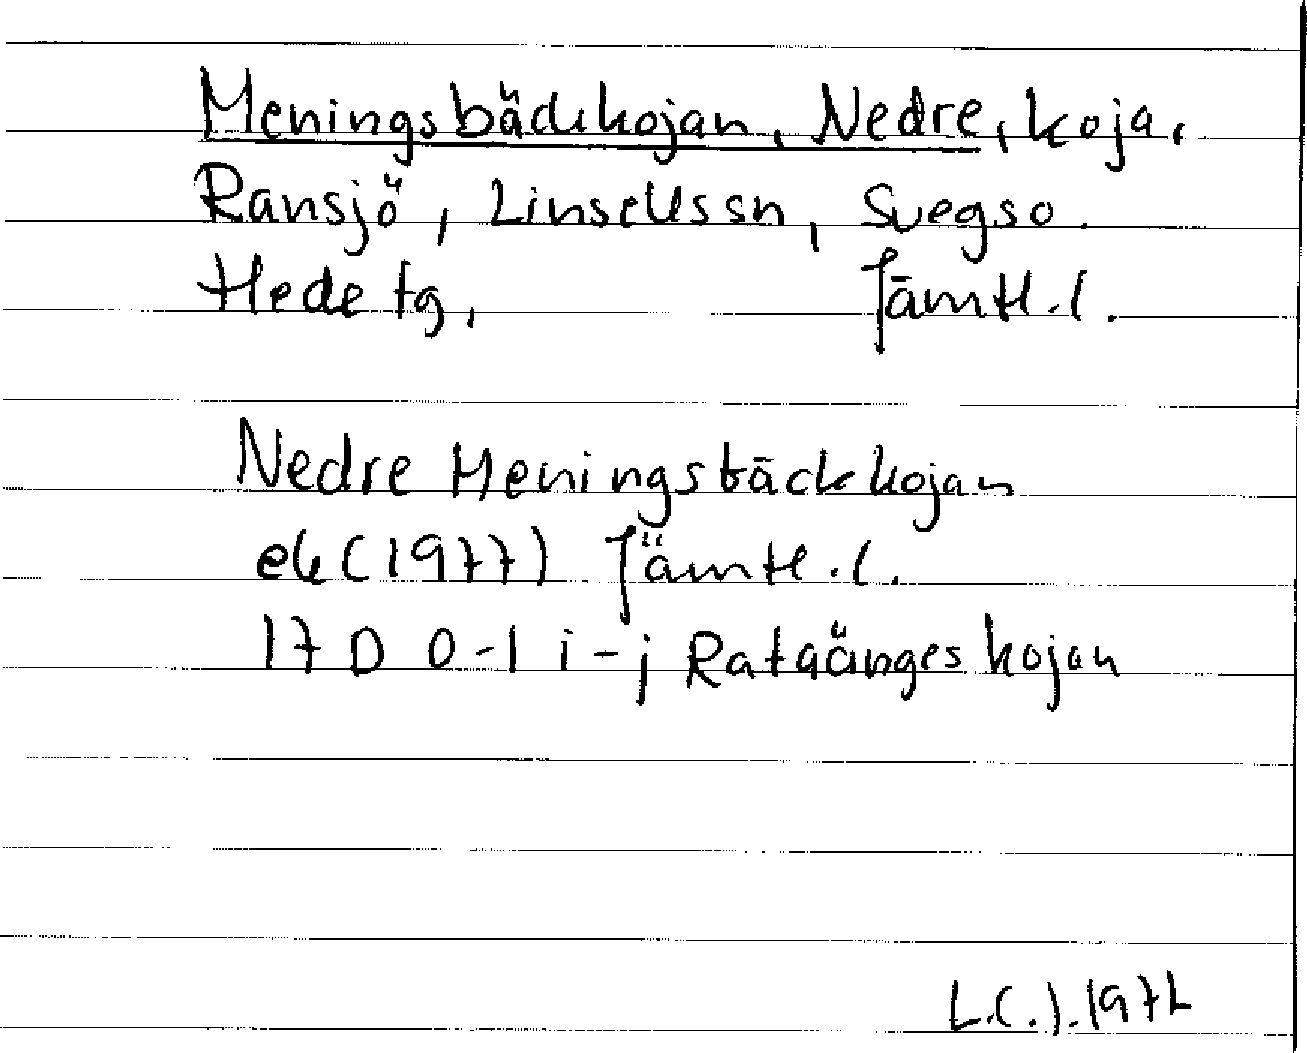 Meningsbäckkojan, Nedre, koja,
Ransjö, Linsellssn, Svegso.
Hede tg, Jämtl.l.
Nedre Meningsbäckkojan
ek (1977) Jämtl.l.
17 D 0-1 i-j Rataängeskojan